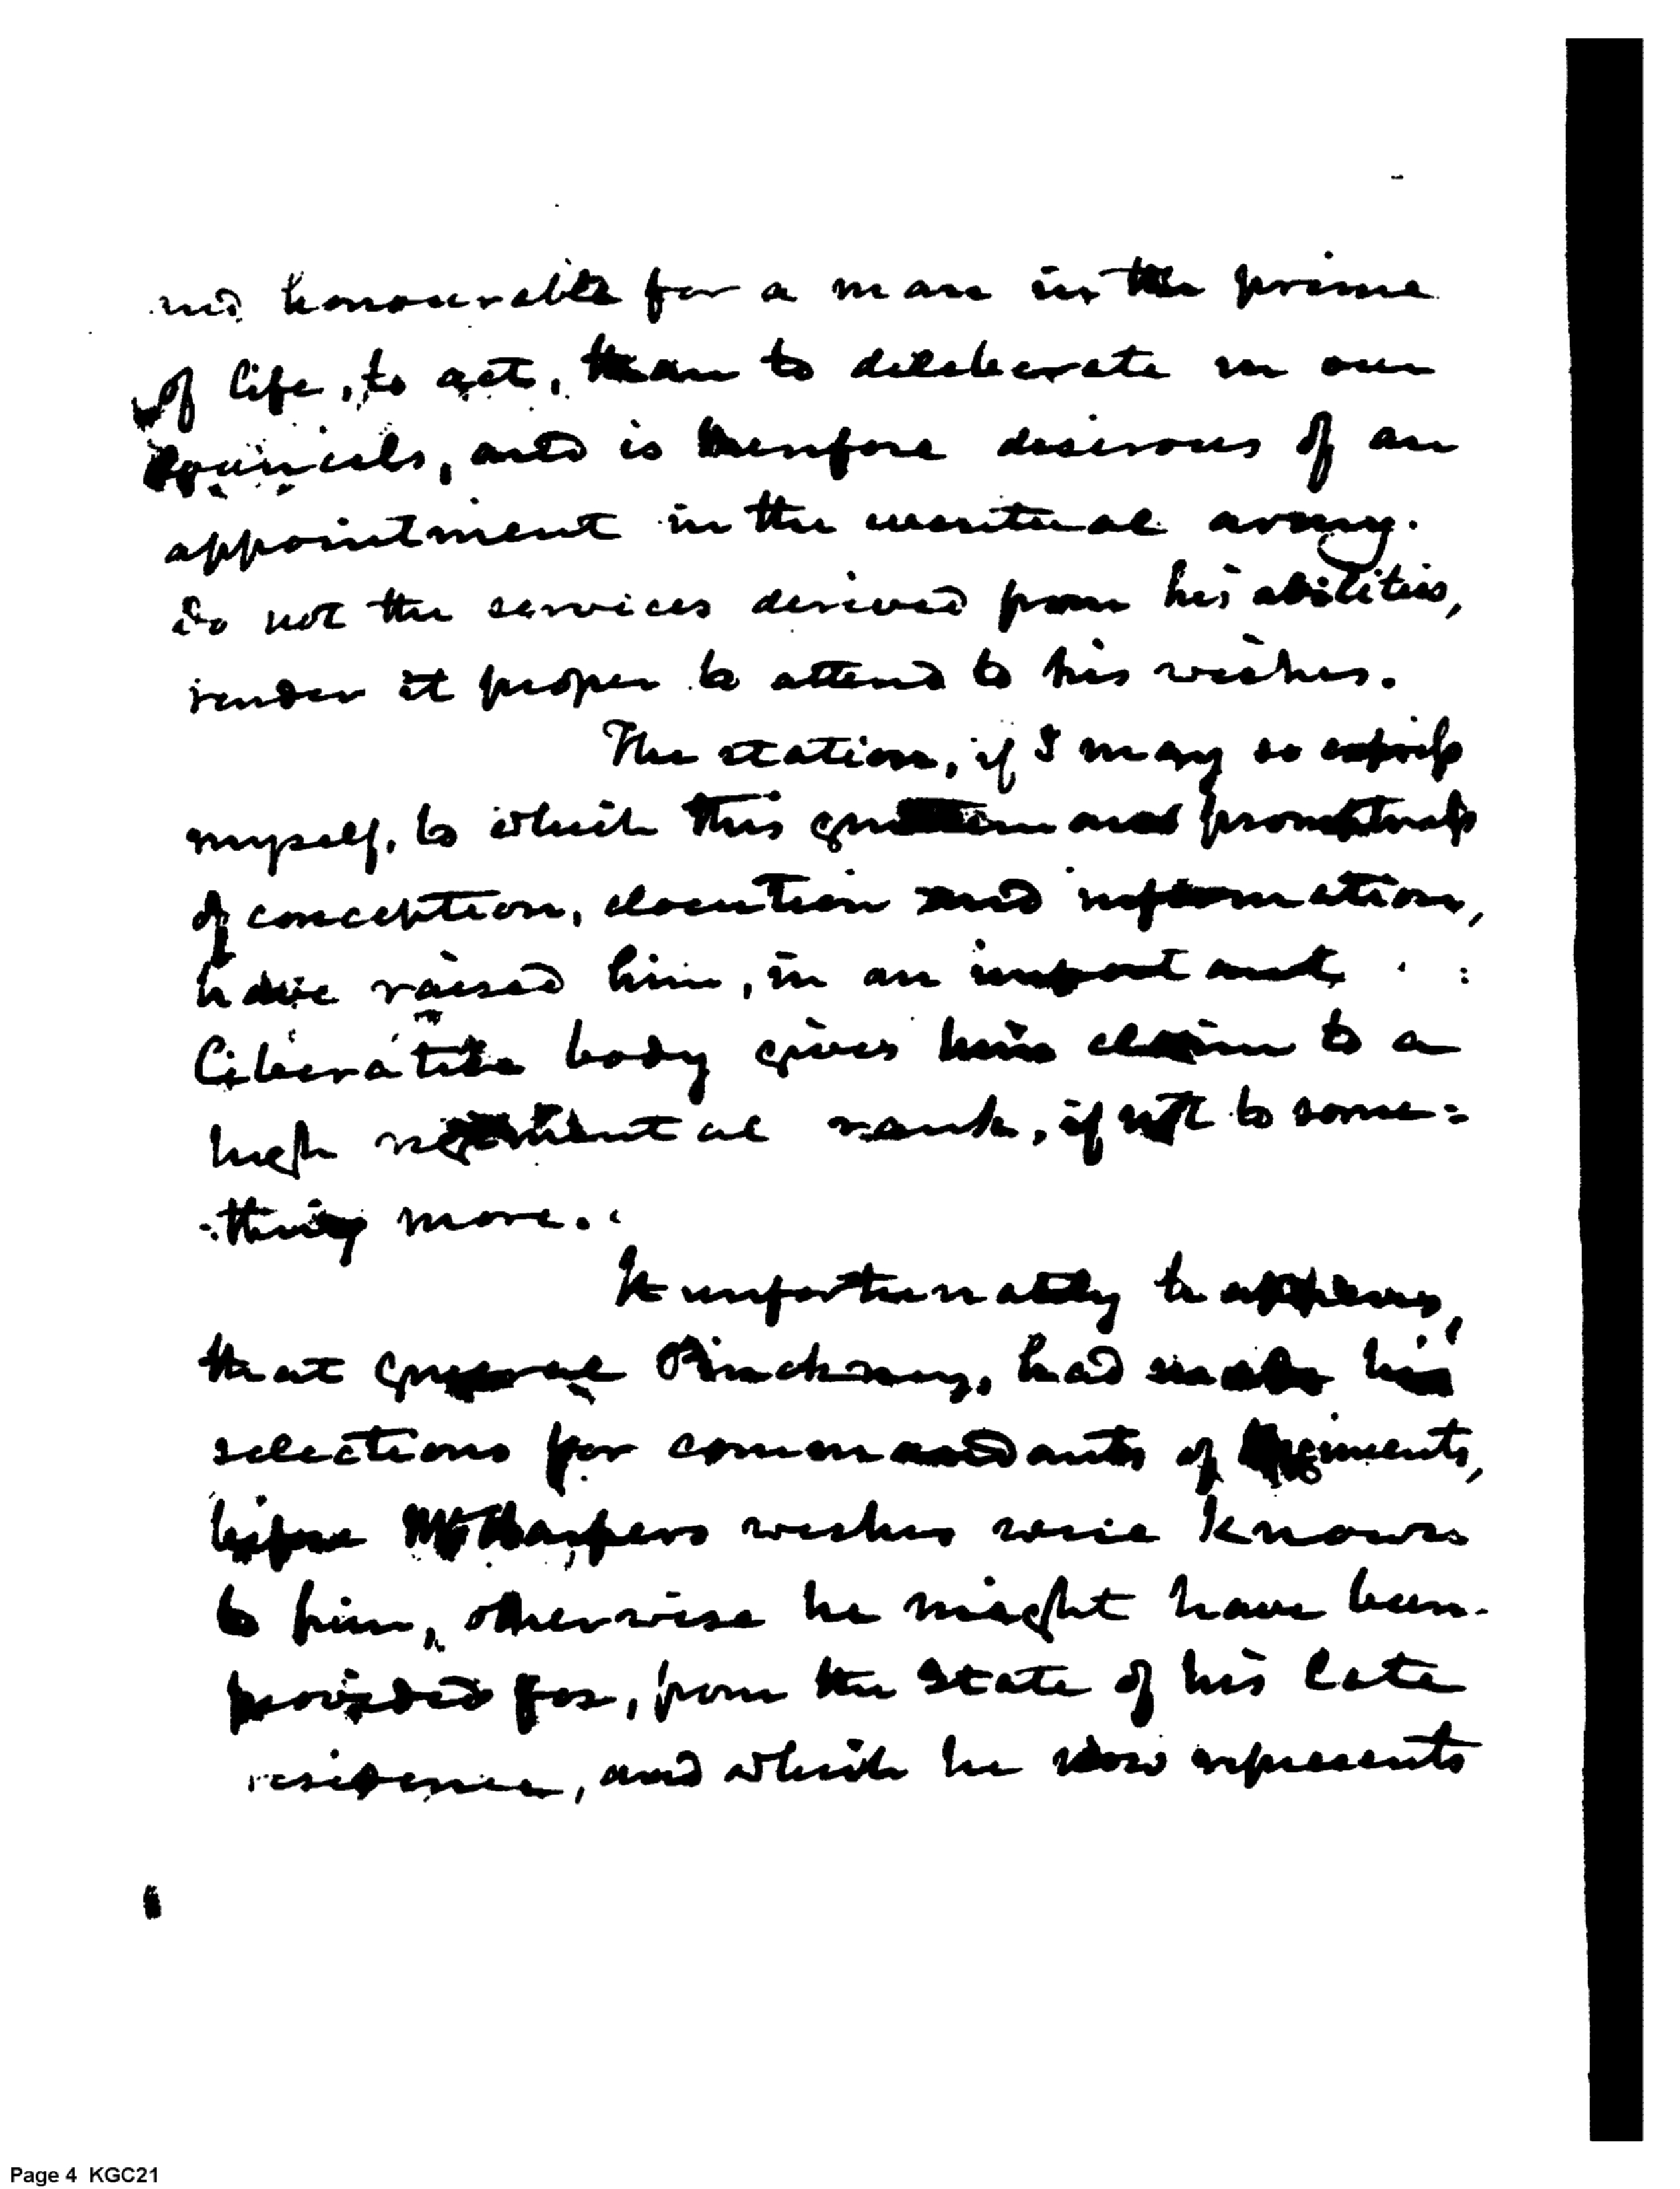 and honourable for a man in the prime
of life, to act, than to deliberate in our
Councils, and is therefore desirous of an
appointment in the eventual army.
Do not the services derived from his abilities,
render it proper to attend to his wishes.
The station, if I may so express
myself, to which this and promptness
of conception, elocution and information,
have raised him, in an important
liberative body gives him claim to a
high regimental rank, if not to some=
=thing more.
It unfortunately happens,
that general Pinckney, had made his
selections for commandants of Regiments,
before Mr Harpers wishes were known
to him, otherwise he might have been
provided for, from the State of his late
residence, and which he now represents
Page 4 KGC21